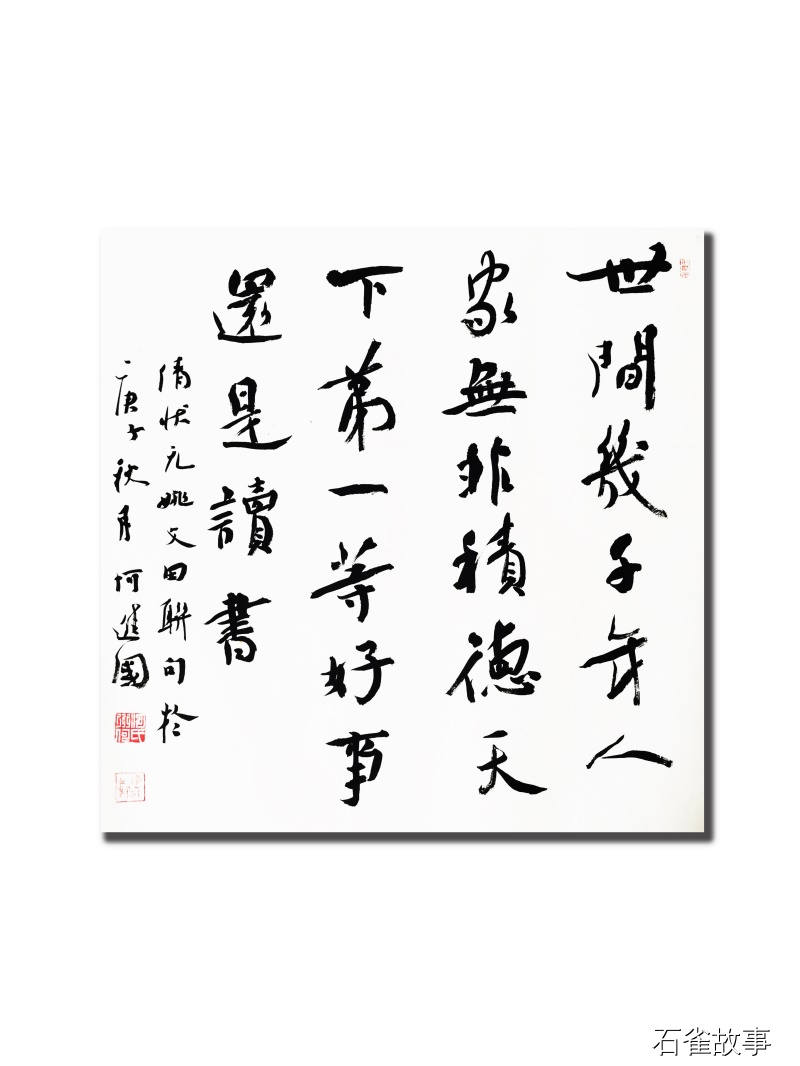 世間幾千年人
家無非積德天
下第一等好事
還是讀書
清状元姚文田聯句於
庚子秋月何進國
石雀故事